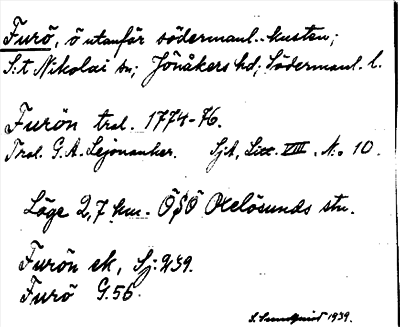 Furö, ö utanför södermanl.-kusten;
S:t Nikolai sn; Jönåkers hd; Södermanl. l.
Furön tral. 1774-76.
Tral. G. A. Lejonanker. SjA, Litt. VIII, N:o 10.
Läge 2,7 km. ÖSÖ Oxelösunds stn.
Furön ek, Sj: 239.
Furö G.56.
S. Sundquist 1939.